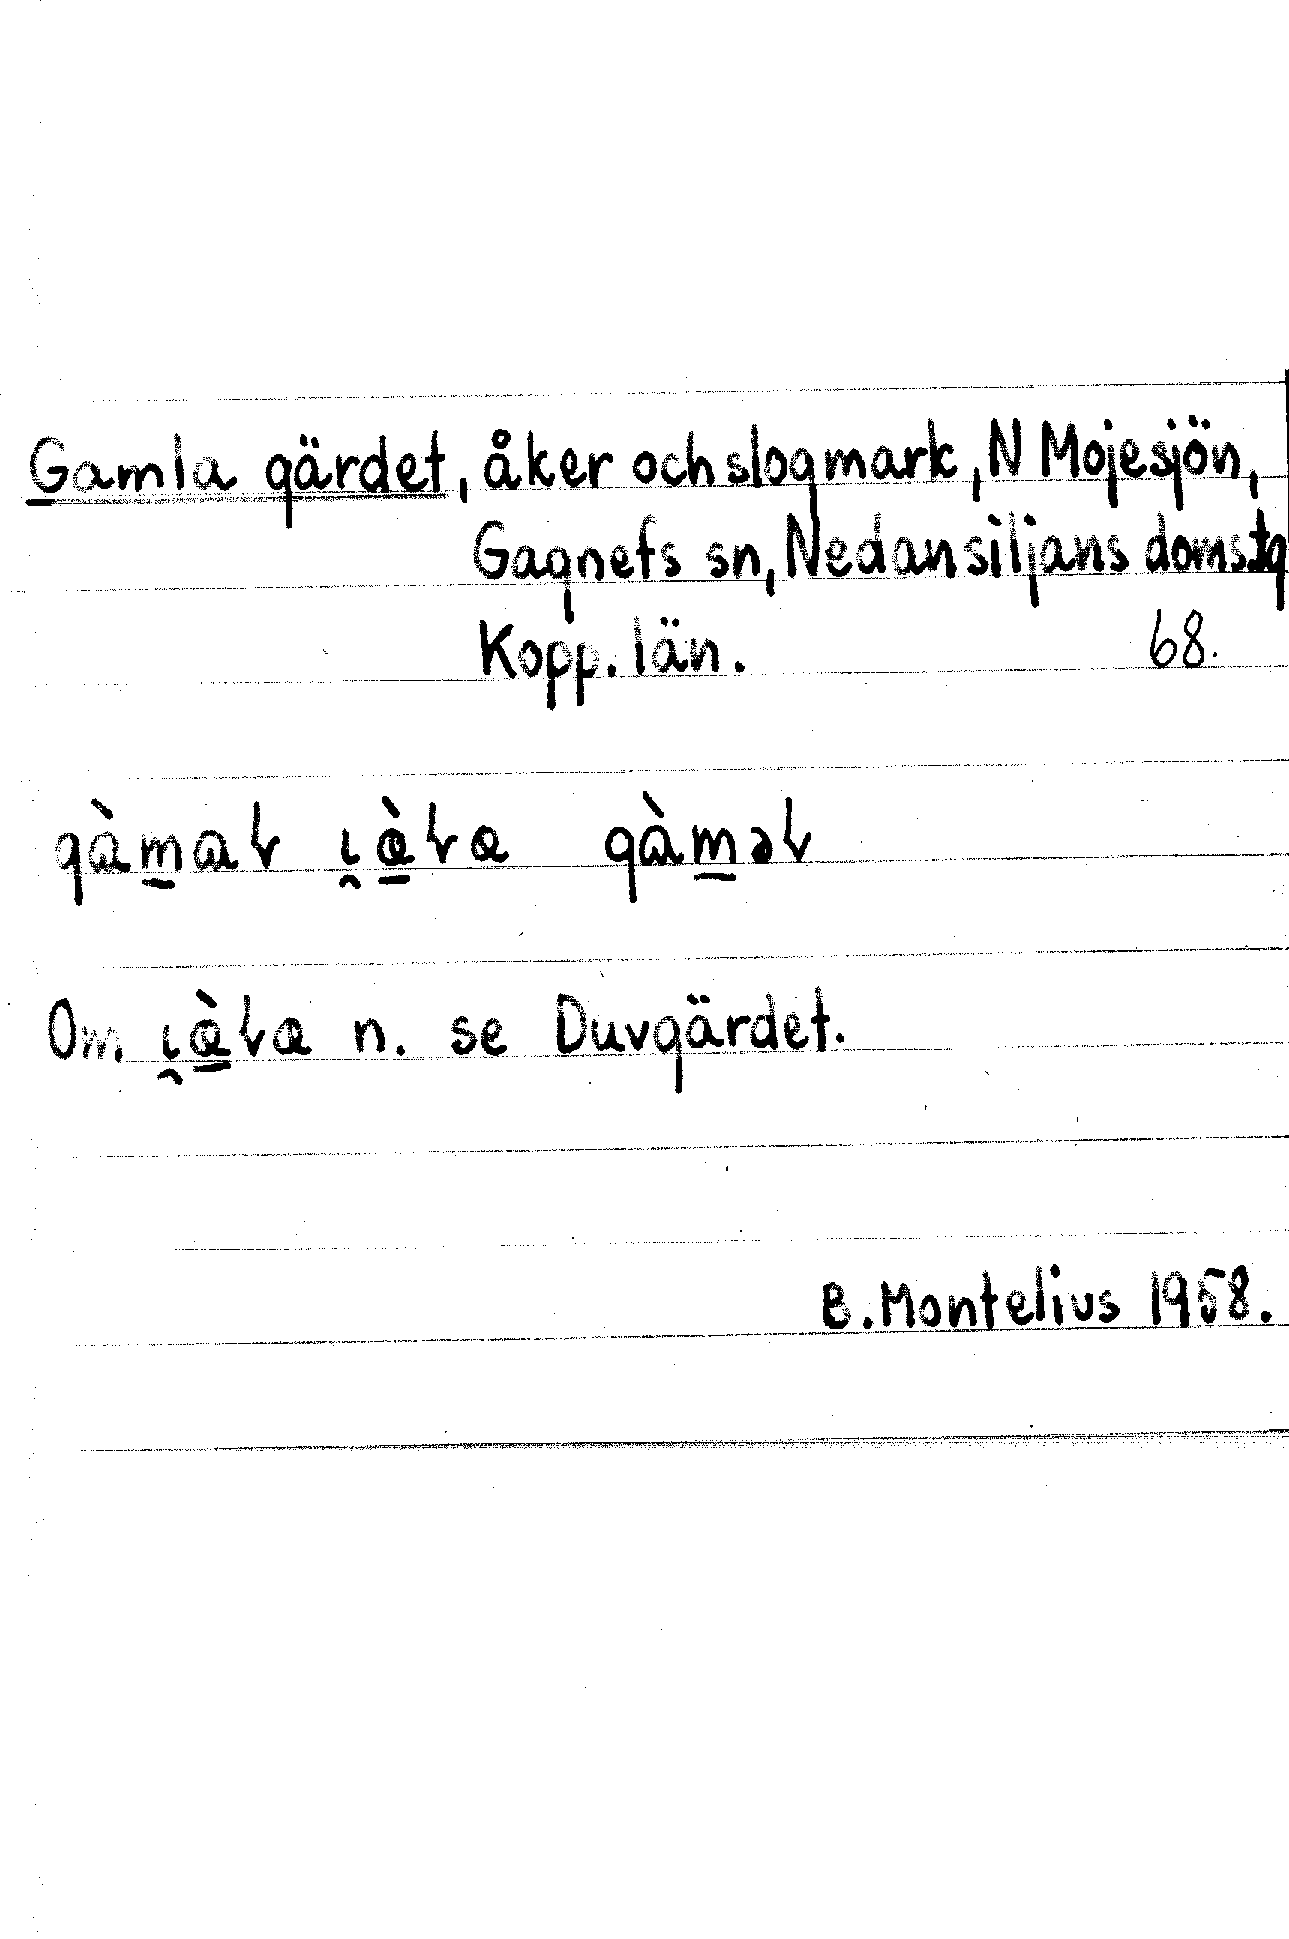 Gamla gärdet, åker och slogmark, N Mojesjön,
Gagnefs sn, Nedansiljans doms.tg
Kopp. län. 68.
n. se Duvgärdet.
Om
B. Montelius 1958.